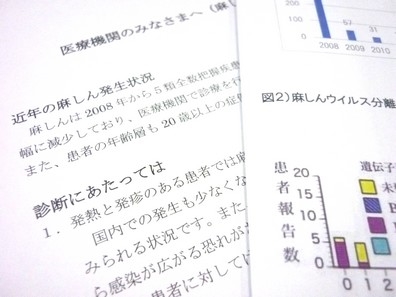 医療機関のみなさまへ（麻し
近年の麻しん発生状況
麻しんは2008年から5類全数把握疾患
幅に減少しており、医療機関で診療を行
また、患者の年齢層も20歳以上の症
診断にあたっては
1．発熱と発疹のある患者では麻
国内での発生も少なくな
みられる状況です。また
ら感染が広がる恐れが
患者に対しては
200
100
0
57
31
2008 2009 2010
図2）麻しんウイルス分離
遺伝子
患者報告数
20
15
10
5
0
0 1 2